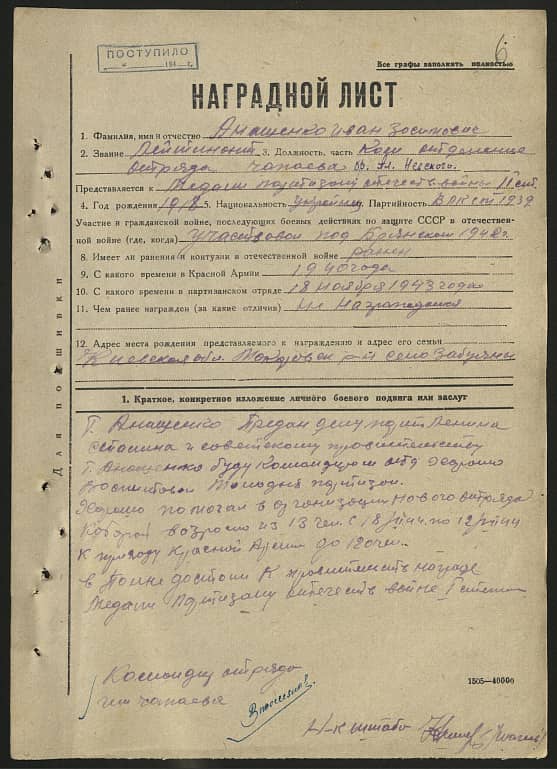 ПОСТУПИЛО
194 г.
6
Все графы заполнять полностью
НАГРАДНОЙ ЛИСТ
1. Фамилия, имя и отчество Анащенко Иван Зосимович
2. Звание Лейтенант 3. Должность, часть Ком отделения
отряда Чапаева Ал. Невского.
Представляется к Медали партизану отечеств. войны II степ
4. Год рождения 1918 5. Национальность украинец Партийность ВЛКСМ 1939
Участие в гражданской войне, последующих боевых действиях по защите СССР в отечествен-
ной войне (где, когда) Участвовал под Брянском 194 г.
8. Имеет ли ранения и контузии в отечественной войне ранен
9. С какого времени в Красной Армии 1940 года
10. С какого времени в партизанском отряде 18 ноября 1943 года
11. Чем ранее награжден (за какие отличия) Не Награждался
12. Адрес места рождения представляемого к награждению и адрес его семьи
Киевская обл. Макаровск р-н село Забуяны
Для подшивки
1. Краткое, конкретное изложение личного боевого подвига или заслуг
Т. Анащенко Предан делу партии Ленина
Сталина и советскому правительству
Т. Анащенко будучи Командиром отд Хорошо
Воспитывал Молодых партизан.
Хорошо помогал в организации Нового отряда
Который возрос из 13 чел. с 18 по 12
К приходу Красной Армии до 120 чел.
в Полне достоин К правительств награде
Медали Партизану отечеств войне I степени
Командир отряда
им Чапаева
1505—4000о
Н-к штаба